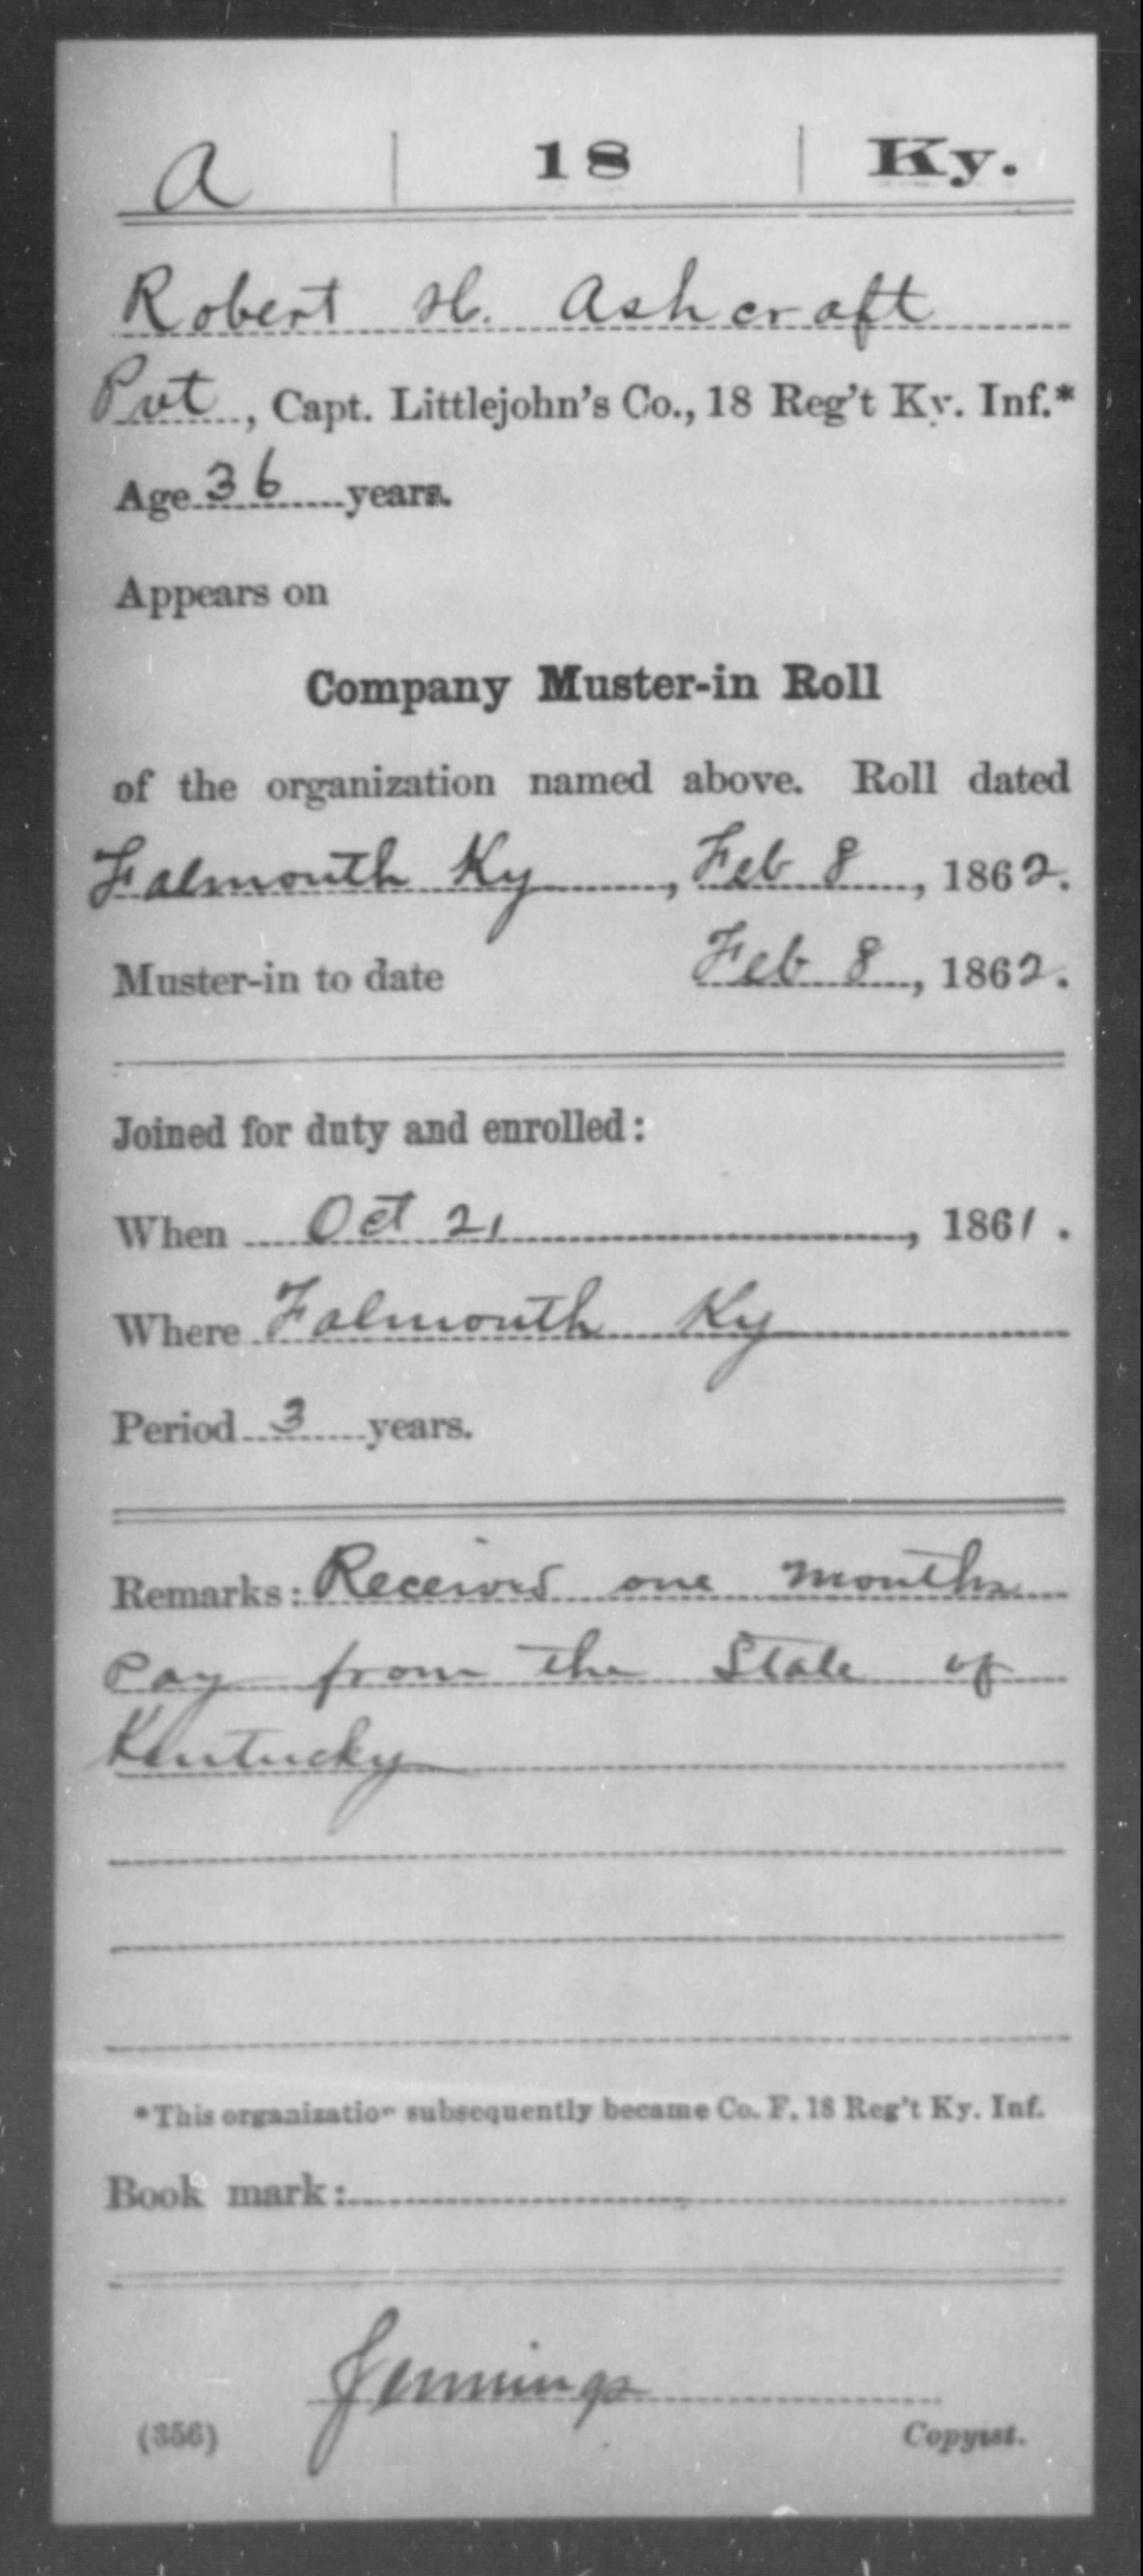 A | 18 | Ky.
Robert H. Ashcraft
Pvt, Capt. Littlejohn's Co., 18 Reg't Ky. Inf.*
Age 36 years.
Appears on
Company Muster-in Roll
of the organization named above. Roll dated
Falmouth Ky, Feb 8, 1862.
Muster-in to date Feb 8, 1862.
Joined for duty and enrolled:
When Oct 21, 1861.
Where Falmouth Ky
Period 3 years.
Remarks: Received one months
pay from the State of
Kentucky
*This organization subsequently became Co. F, 18 Reg't Ky. Inf.
Book mark:
Jennings
(356) Copyist.